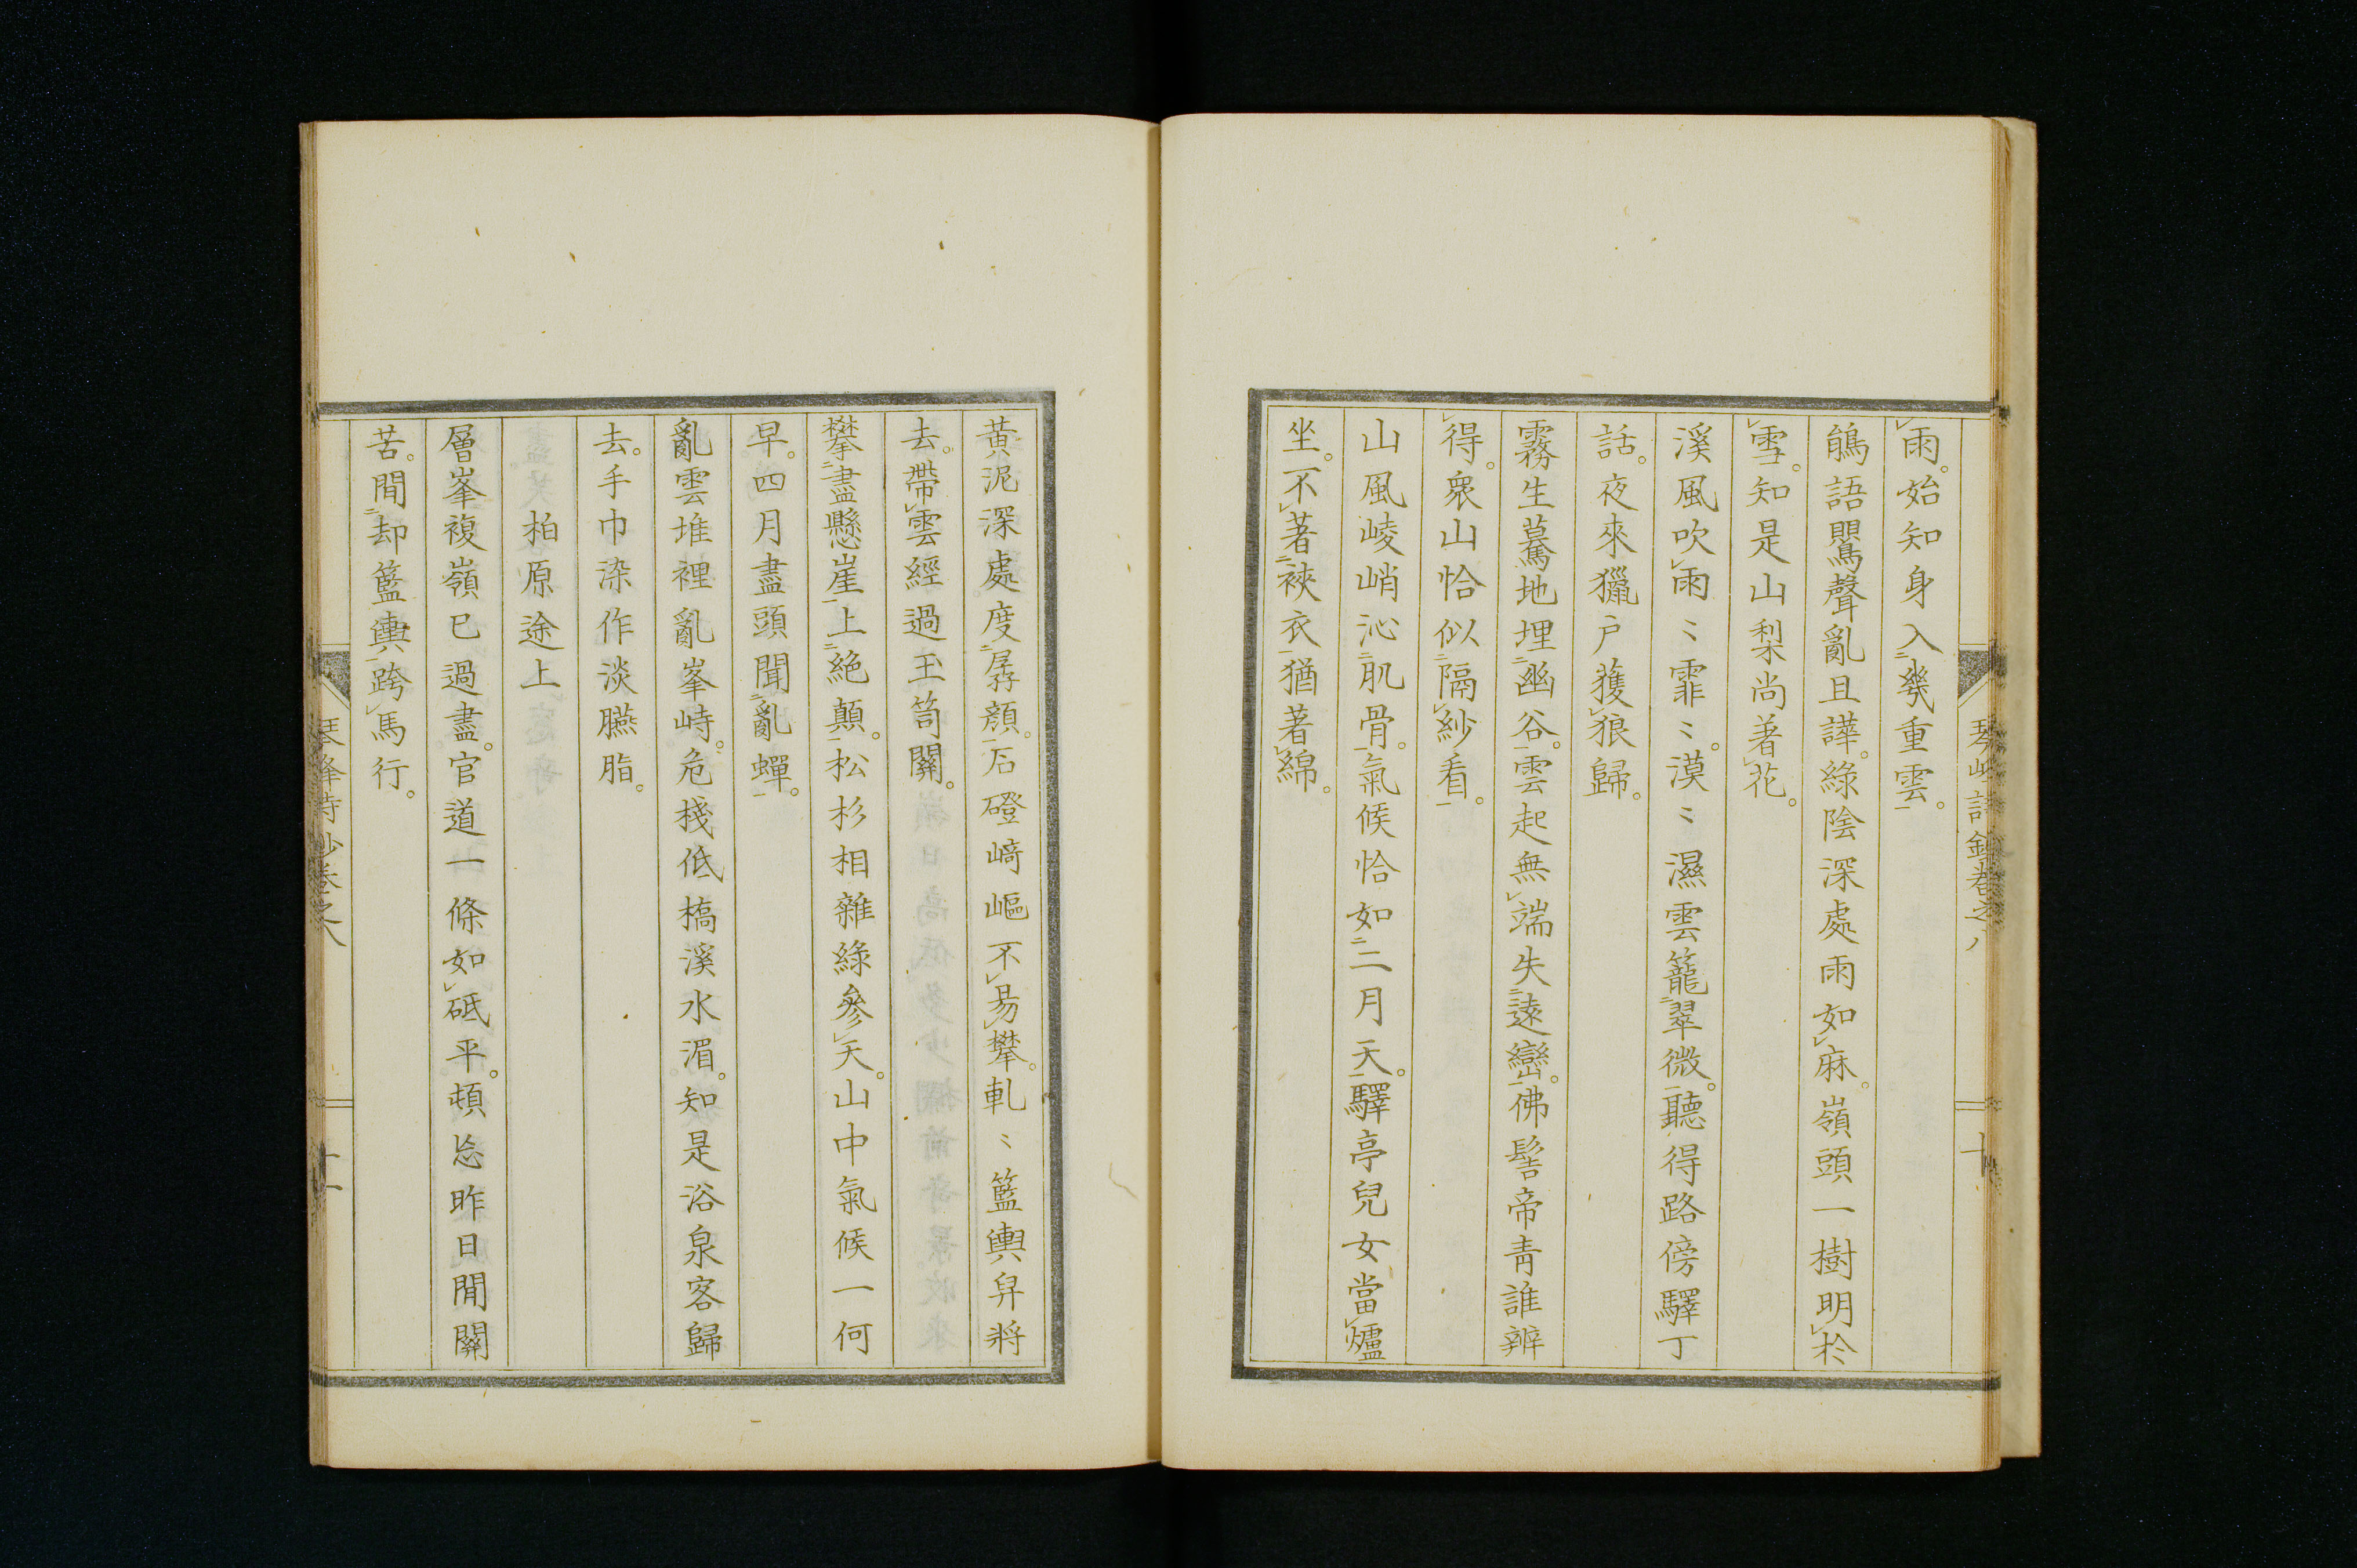 雨。始知身入幾重雲。
鵃語鸎聲亂且譁。綠陰深處雨如麻。嶺頭一樹明於
雪。知是山梨尚著花。
溪風吹雨〻霏〻。漠〻濕雲籠翠微。聽得路傍驛丁
話。夜來獵戶獲狼歸。
霧生驀地埋幽谷。雲起無端失遠巒。佛髻帝青誰辨
得。衆山恰似隔紗看。
山風崚峭沁肌骨。氣候恰如二月天。驛亭兒女當爐
坐。不著裌衣猶著綿。
黃泥深處度孱顏。石磴崎嶇不易攀。軋〻籃輿舁將
去。帶雲經過玉笥關。
攀盡懸崖上絕顛。松杉相雜綠參天。山中氣候一何
早。四月盡頭聞亂蟬。
亂雲堆裡亂峯峙。危棧低橋溪水湄。知是浴泉客歸
去。手巾染作淡臙脂。
柏原途上
層峯複嶺已過盡。官道一條如砥平。頓忘昨日間關
苦。閒却籃輿跨馬行。
琴峰詩鈔卷之八
十一